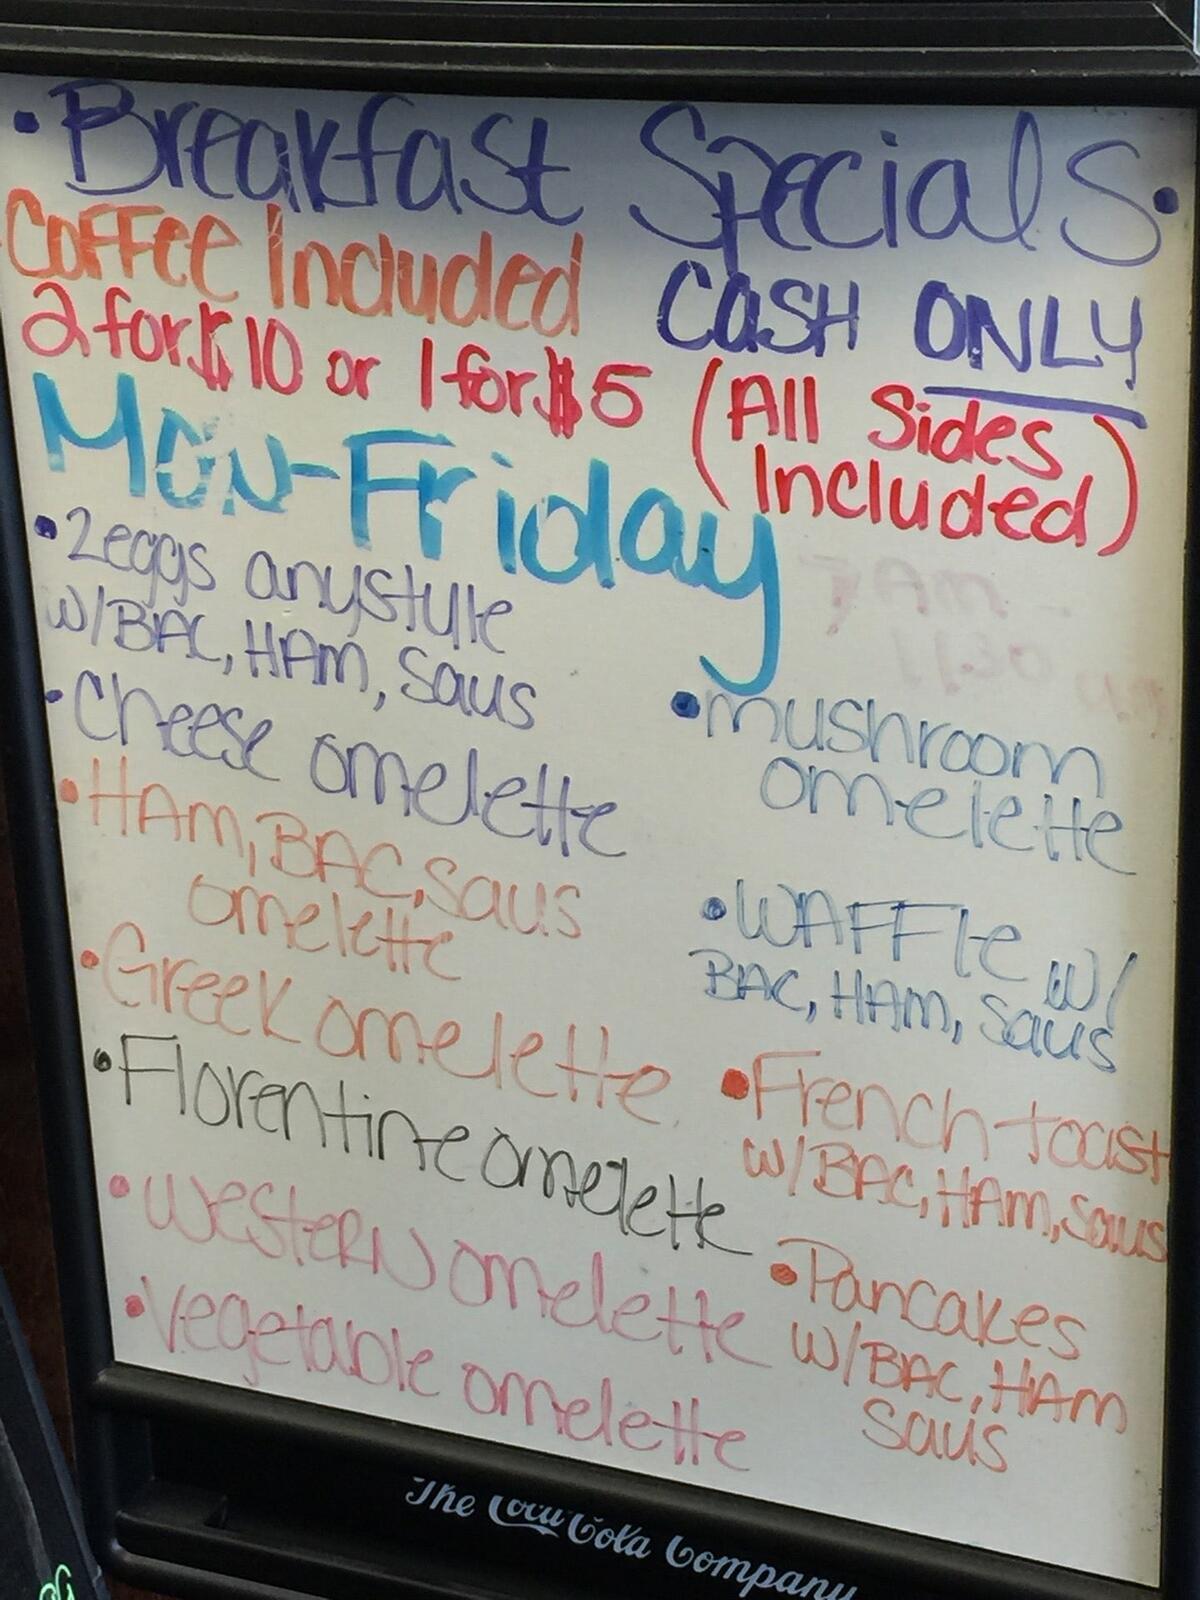 • Breakfast Specials •
Coffee Included
CASH ONLY
2 for $10 or 1 for $5
(All Sides
Included)
Mon-Friday
• 2 eggs anystyle
w/BAC, HAm, Saus
• Cheese omelette
• HAm, BAC, Saus
omelette
• Greek omelette
• Florentine omelette
• Western omelette
• Vegetable omelette
• mushroom
omelette
• WAFFle w/
BAC, HAm, Saus
• French toast
w/BAC, HAm, Saus
• Pancakes
w/BAC, HAm
Saus
The Coca-Cola Company